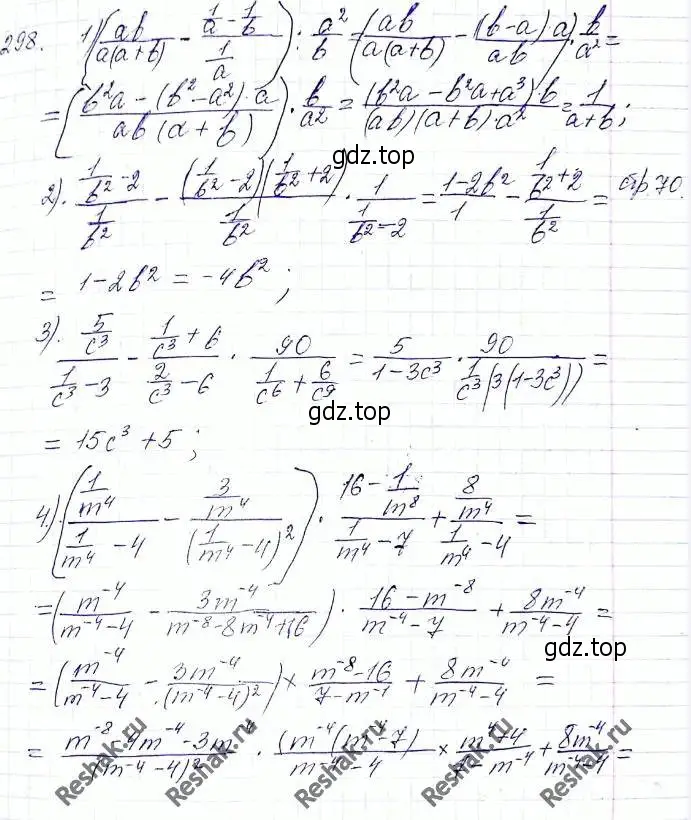 298. 1) (ab/(a(a+b)) - (1/a - 1/b)/(1/a)) : a²/b = (ab/(a(a+b)) - ((b-a)a)/(ab)) · b/a² =
= ((b²a - (b² - a²)·a)/(ab(a+b))) · b/a² = ((b²a - b²a + a³)·b)/((ab)(a+b)·a²) = 1/(a+b);
gdz.top
2). (1/b² - 2)/(1/b²) - ((1/b² - 2)(1/b² + 2))/(1/b²) · 1/(1/b² - 2) = (1-2b²)/1 - (1/b² + 2)/(1/b²) = стр. 70.
= 1-2b² = -4b²;
3). (5/c³)/(1/c³ - 3) - (1/c³ + 6)/(2/c³ - 6) · 90/(1/c⁶ + 6/c⁹) = 5/(1-3c³) · 90/(1/c³(3(1-3c³))) =
gdz.top
= 15c³ + 5;
4.) ((1/m⁴)/(1/m⁴ - 4) - (3/m⁴)/(1/m⁴ - 4)²) · (16 - 1/m⁸)/(1/m⁴ - 7) + (8/m⁴)/(1/m⁴ - 4) =
= (m⁻⁴/(m⁻⁴-4) - 3m⁻⁴/(m⁻⁸-8m⁻⁴+16)) · (16-m⁻⁸)/(m⁻⁴-7) + 8m⁻⁴/(m⁻⁴-4) =
gdz.top
= (m⁻⁴/(m⁻⁴-4) - 3m⁻⁴/(m⁻⁴-4)²) × (m⁻⁸-16)/(7-m⁻¹) + 8m⁻⁴/(m⁻⁴-4) =
Reshak.ru Reshak.ru Reshak.ru Reshak.ru